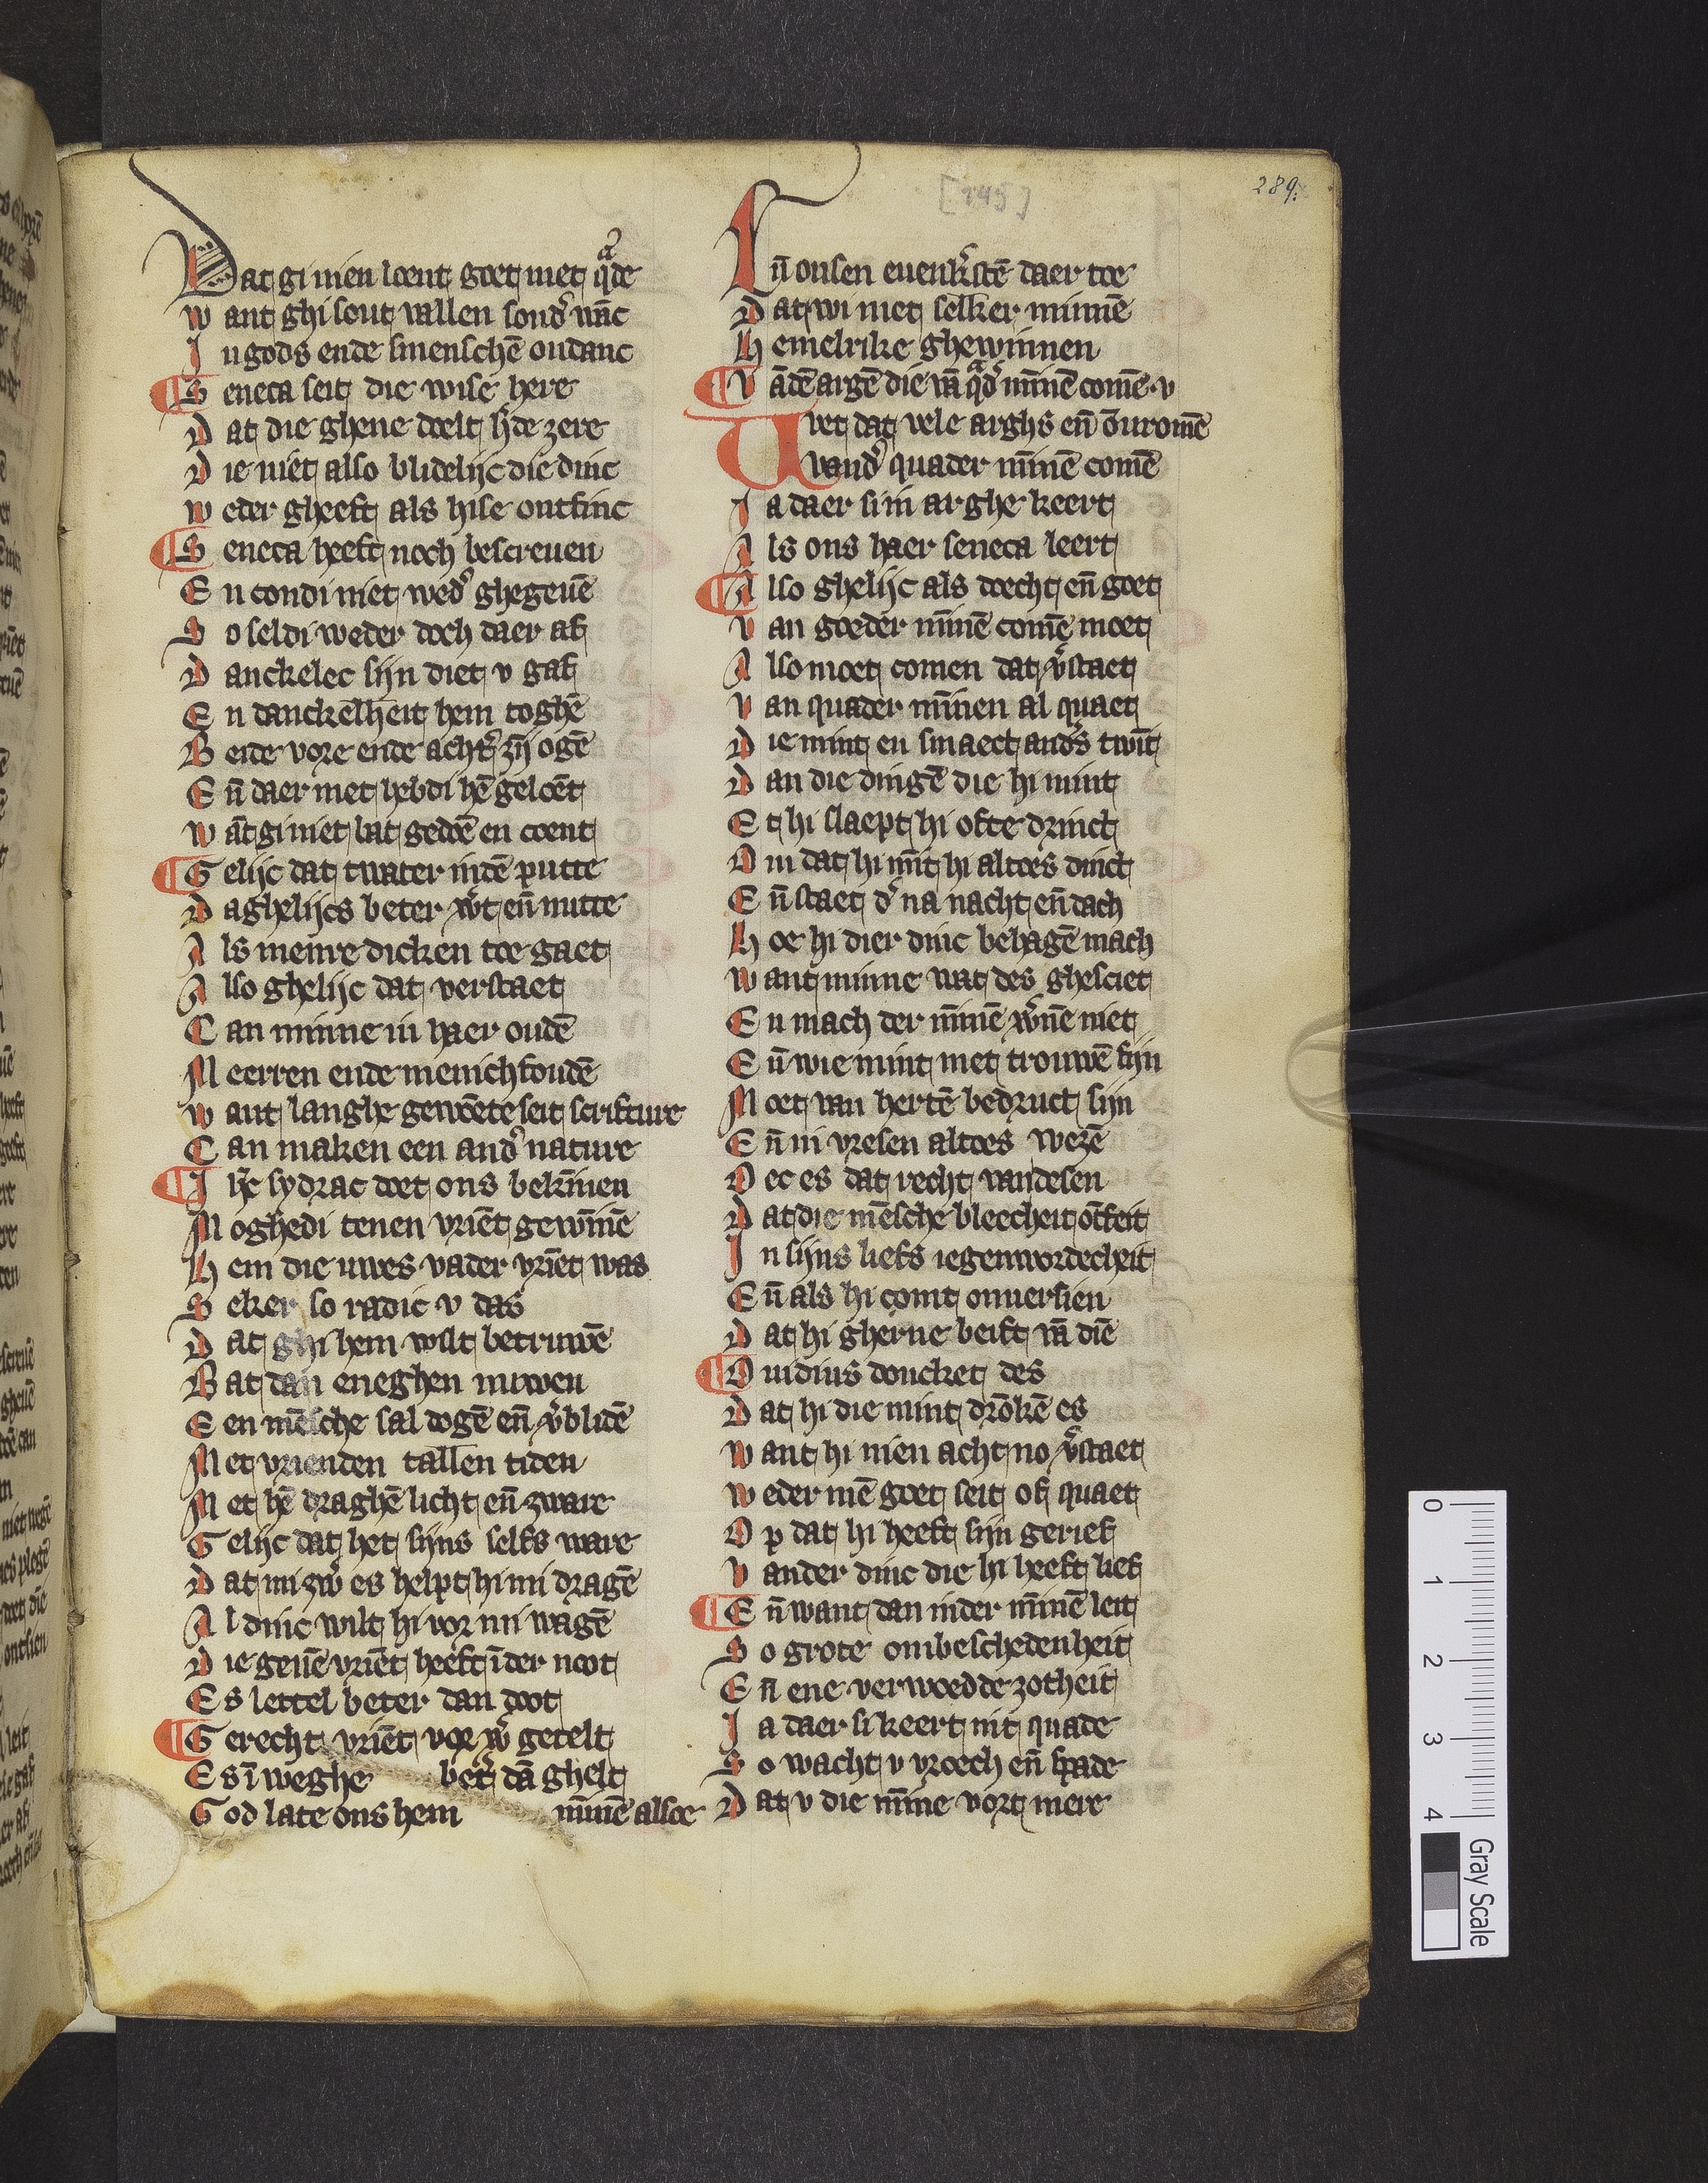 289.
[245]
Dat gi nien loent goet met qͣde
Want ghi sout vallen sond᷑ wāc
In gods ende smenschē ondanc
¶ Seneca seit die wise here
Dat die ghene doelt h̄de zere
Die niet also blidelijc die dinc
Weder gheeft als hise ontfinc
¶ Seneca heeft noch bescreuen
En condi niet wed᷑ ghegeuē
So seldi weder doch daer af
Danckelec sijn diet v gaf
En danckelheit hem toghē
Bede vore ende acht᷑ zij ogē
Eñ daer met hebdi hē geloēt
Wāt gi niet bat gedoē en coent
¶ Gelijc dat twater indē putte
Daghelijcs beter w᷑t eñ nutte
Als meinre dicken toe gaet
Also ghelijc dat verstaet
Can minne in haer oudē
Meerren ende menichfoudē
Want langhe gewoēte seit scrifture
Can maken een and᷑ nature
¶ Ijc sydrac doet ons bekīnen
Moghedi tenen vriēt gewīnē
Hem die uwes vader vriēt was
Seker so radic v das
Dat ghi hem wilt betruwē
Bat dan eneghen nuwen
Een mēsche sal dogē eñ v᷑blidē
Met vrienden tallen tiden
Met hē draghē licht eñ zware
Gelijc dat het sijns selfs ware
Dat mi zw᷑ es helpt hi mi dragē
Al dinc wilt hi vor mi wagē
Die geuē vriēt heeft īder noot
Es lettel beter dan doot
¶ Gerecht vriēt vor w᷑ getelt
Es ī weghe bet᷑ dā ghelt
God late ons hem mīnē alsoe
Eñ onsen euenk᷑stē daer toe
Dat wi met selker minnē
Hemelrike ghewinnen
¶ Vādē argē die vā qͣd᷑ mīnē comē v
Wet dat vele arghs eñ onuromē
Vand᷑ quader mīnē comē
Ja daer si in arghe keert
Als ons haer seneca leert
¶ Also ghelijc als doecht eñ goet
Van goeder mīnē comē moet
Also moet comen dat v᷑staet
Van quader mīnen al quaet
Die mint en smaect and᷑s twīt
Dan die dingē die hi mint
Et hi slaept hi ofte drinct
Om dat hi mīt hi altoes dinct
Eñ staet d᷑ na nacht eñ dach
Hoe hi dier dinc behagē mach
Want minne wat des ghesciet
En mach der mīnē w᷑nē niet
Eñ wie mint met trouwē fijn
Moet van hertē bedruct sijn
Eñ in vresen altoes wezē
Oec es dat recht van desen
Dat die mēsche bleecheit ōtfeit
In sijns liefs iegenwordecheit
Eñ als hi comt onuersien
Dat hi gherne beift vā diē
¶ Ouidius doncket des
Dat hi die mint drōkē es
Want hi nien acht no v᷑staet
Weder mē goet seit of quaet
Op dat hi heeft sijn gerief
Vander dinc die hi heeft lief
¶ Eñ want dan inder mīnē leit
So grote onbeschedenheit
Eñ ene verwoedde zotheit
Ja daer si keert int quade
So wacht v vroech eñ spade
Dat v die mīne vort mere
0
1
2
3
4
Gray Scale